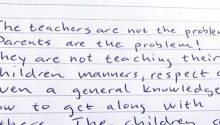 The teachers are not the problem
Parents are the problem!
They are not teaching their
children manners, respect
even a general knowledge
how to get along with
The children